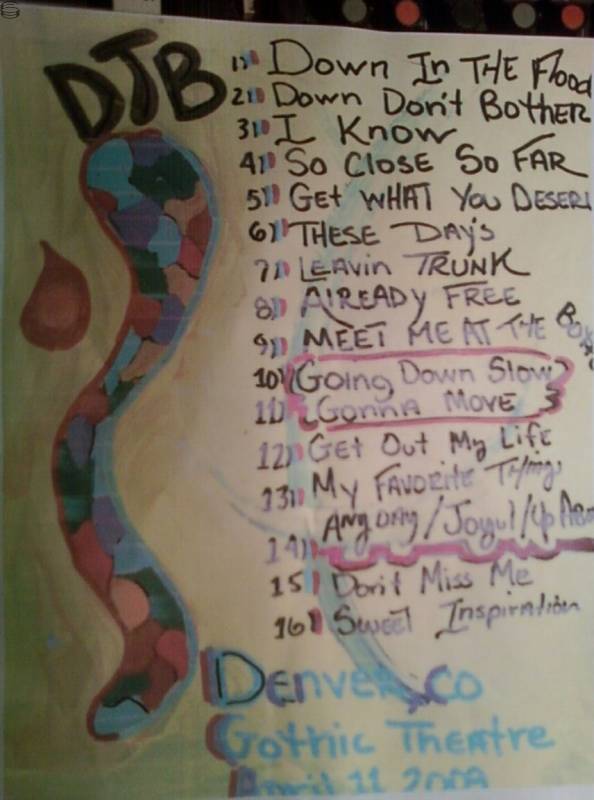 DTB
1) Down In THE Flood
2) Down Don't BOTHER
3) I Know
4) So Close So FAR
5) Get WHAT You DESER
6) THESE DAY'S
7) LEAVIN TRUNK
8) AlREADY FREE
9) MEET ME AT THE
10) Going Down Slow
11) GonnA MOVE
12) Get Out My Life
13) My FAVORITE
14) Anyday / Joyul / Up Abo
15) Don't Miss Me
16) Sweet Inspiration
Denver, CO
Gothic Theatre
April 11 2009